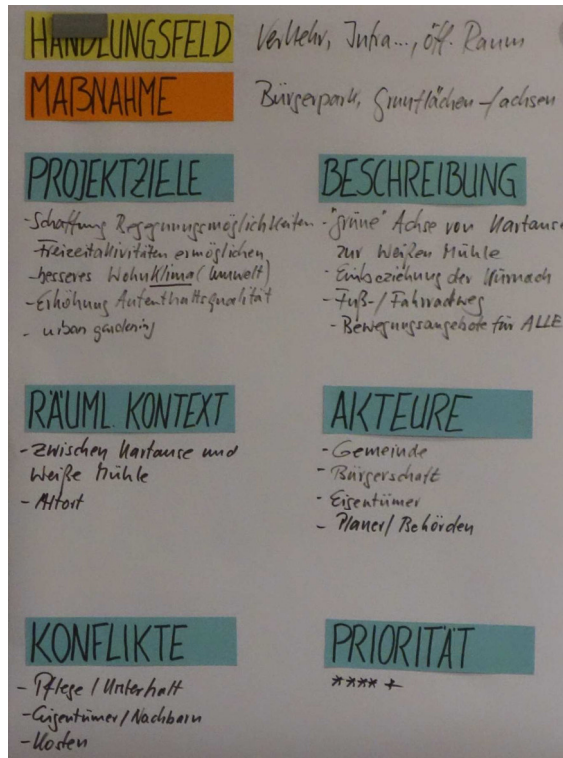 HANDLUNGSFELD Verkehr, Infra..., öff. Raum
MAẞNAHME Bürgerpark, Grünflächen -/achsen
PROJEKTZIELE
- Schaffung Begegnungsmöglichkeiten
- Freizeitaktivitäten ermöglichen
- besseres Wohnklima (Umwelt)
- Erhöhung Aufenthaltsqualität
- urban gardening
BESCHREIBUNG
- "grüne" Achse von Kartause
zur Weißen Mühle
- Einbeziehung der Kürnach
- Fuß-/Fahrradweg
- Bewegungsangebote für ALLE
RÄUML. KONTEXT
- zwischen Kartause und
Weiße Mühle
- Altort
AKTEURE
- Gemeinde
- Bürgerschaft
- Eigentümer
- Planer/Behörden
KONFLIKTE
- Pflege/Unterhalt
- Eigentümer/Nachbarn
- Kosten
PRIORITÄT
**** +